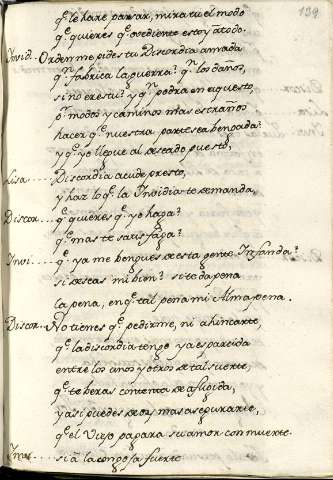 139
qe le hare parar, mira tu el modo
qe quieres qe ovediente estoy à todo.
Invid. Orden me pides tu Discordia amada
qn fabrica la guerra? qn los daños,
si no eres tu? y qn podra en aquesto,
pr modos y caminos mas estraños
hacer qe nuestra parte sea bengada?
y qe yo llegue al deseado puesto,
Lisa. Discordia acude presto,
y haz lo qe la Invidia te demanda,
Discor. qe quieres qe yo haga?
qe mas te satisfaga?
Invi. qe ya me bengues de esta gente Infanda?
si deseas mi bien? si te da pena
la pena, en qe tal pena mi Alma pena.
Discor. No tienes qe pedirme, ni ahincarte,
qe la discordia tengo ya esparcida
entre los unos y otros de tal suerte,
qe te beras contenta de afligida,
y asi puedes de oy mas asegurarte,
qe el Viejo pagara su amor con muerte.
si à la fuerte